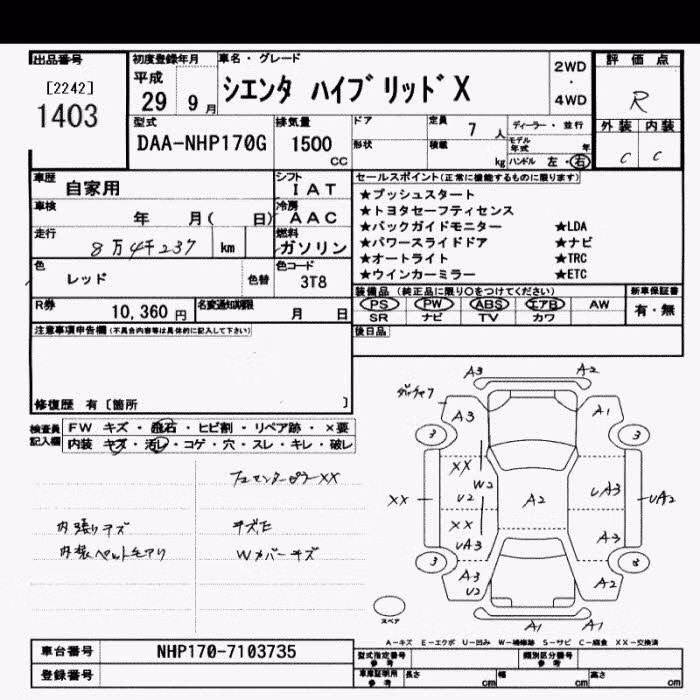 出品番号
[2242]
1403
初度登録年月
平成
29 9月
車名・グレード
シエンタ ハイブリッドX
2WD
・
4WD
評価点
R
外装 内装
C C
型式
DAA-NHP170G
排気量
1500
CC
ドア
形状
定員
7人
積載
kg
ディーラー・並行
モデル年式 年
ハンドル 左・右
車歴
自家用
シフト
IAT
車検
年 月( 日)
冷房
AAC
走行
8万4千237 km
燃料
ガソリン
色
レッド
色替
色コード
3T8
R券
10,360円
名変通知期限
月 日
セールスポイント(正常に機能するものに限ります)
★プッシュスタート
★トヨタセーフティセンス
★バックガイドモニター ★LDA
★パワースライドドア ★ナビ
★オートライト ★TRC
★ウインカーミラー ★ETC
装備品(純正品に限り○をつけてください)
PS PW ABS エアB AW
SR ナビ TV カワ
新車保証書
有・無
後日品
注意事項申告欄(不具合内容等は具体的に記入して下さい)
修復歴 有〔箇所 〕
検査員記入欄
FW キズ・飛石・ヒビ割・リペア跡・×要
内装 キズ・汚レ・コゲ・穴・スレ・キレ・破レ
フロセンターピラーXX
内張りキズ
キズ
内張ペット毛アリ
Wメバーキズ
A3 A2
A3 A1
3 3
XX W2
U2
XX
UA3
XX
A2
UA3
UA2
A3
3 3
A3
U2
A2
A1 A1
スペア
A-キズ E-エクボ U-凹み W-補修跡 S-サビ C-腐食 XX-交換済
車台番号
NHP170-7103735
登録番号
型式指定番号
参考
類別区分番号
参考
車庫証明用
参考
長さ cm
幅 cm
高さ cm